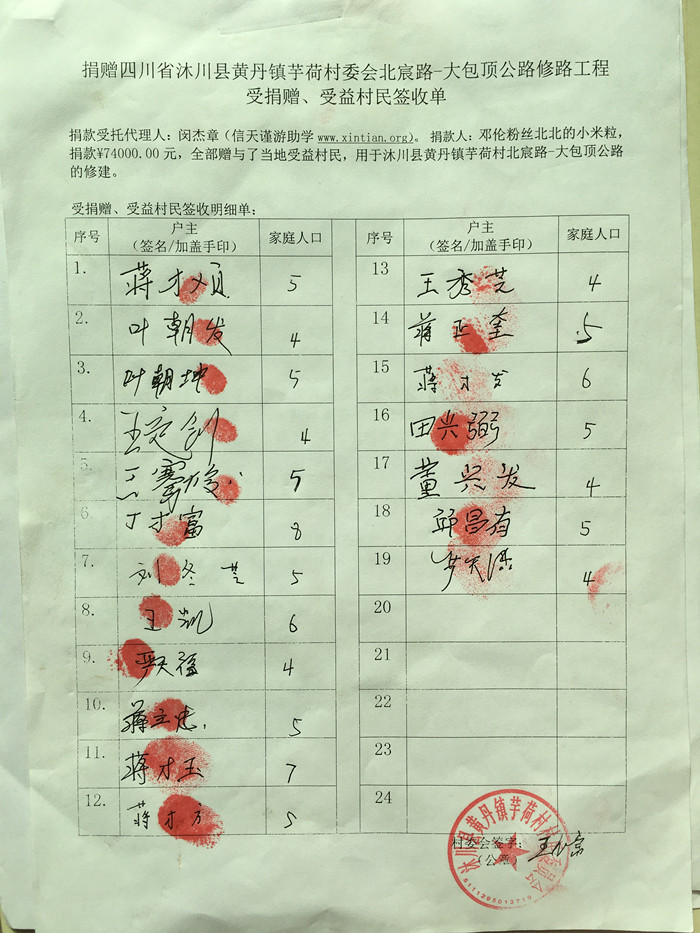 捐赠四川省沐川县黄丹镇芋荷村委会北宸路-大包顶公路修路工程
受捐赠、受益村民签收单
捐款受托代理人：闵杰章（信天谨游助学 www.xintian.org）。 捐款人：邓伦粉丝北北的小米粒，
捐款¥74000.00 元，全部赠与了当地受益村民，用于沐川县黄丹镇芋荷村北宸路-大包顶公路
的修建。
受捐赠、受益村民签收明细单：
序号 户主（签名/加盖手印） 家庭人口
1. 蒋才顺 5
2. 叶朝发 4
3. 叶朝坤 5
4. 王定剑 4
5. 5
6. 丁才富 8
7. 刘冬芝 5
8. 王凯 6
9. 严天福 4
10. 蒋立忠 5
11. 蒋才玉 7
12. 蒋才方 5
序号 户主（签名/加盖手印） 家庭人口
13 王秀芝 4
14 蒋正奎 5
15 蒋才发 6
16 田兴弼 5
17 董兴发 4
18 邱昌有 5
19 4
20
21
22
23
24
村委会签字：
（公章）
沐川县黄丹镇芋荷村村民委员会